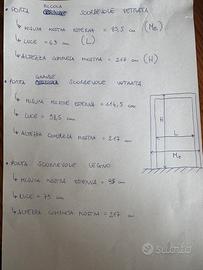 PORTA PICCOLA SCORREVOLE VETRATA
↳ MISURA MOSTRA ESTERNA = 82,5 cm (Me)
↳ LUCE = 63 cm (L)
↳ ALTEZZA COMPRESA MOSTRA = 217 cm (H)
• PORTA GRANDE SCORREVOLE VETRATA
↳ MISURA MOSTRE ESTERNA = 114,5 cm
↳ LUCE = 98,5 cm
↳ ALTEZZA COMPRESA MOSTRA = 217 cm
H
L
Me
• PORTA SCORREVOLE LEGNO
↳ MISURA MOSTRA ESTERNA = cm
↳ LUCE = 75 cm
↳ ALTEZZA COMPRESA MOSTRA = 217 cm
subito